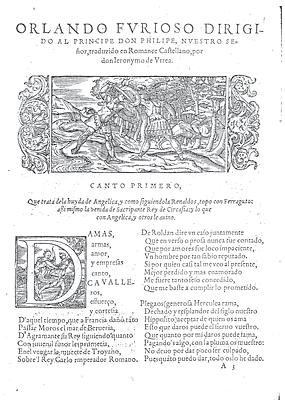 ORLANDO FVRIOSO DIRIGI-
DO AL PRINCIPE DON PHILIPE, NVESTRO SE-
ñor, traduzido en Romance Castellano, por
don Ieronymo de Vrrea.
CANTO PRIMERO,
Que trata dela huyda de Angelica, y como siguiendola Renaldos, topo con Ferraguto:
assi mismo la venida de Sacripante Rey de Circassia: y lo que
con Angelica, y otros le auino.
DAMAS,
armas,
amor,
y empresas
canto,
CAVALLE-
ros,
esfuerço,
y cortesia
D'aquel tiempo, que a Francia
Passar Moros el mar de Berueria,
D'Agramante su Rey siguiendo quanto
Con juuenil furor les prometia,
En el vengar la muerte de Troyano,
Sobre'l Rey Carlo emperador Romano.
De Roldan dire vn caso juntamente
Que en verso o prosa nunca fue contado,
Que por amores fue loco impaciente,
Vn hombre por tan sabio reputado.
Si por quien casi tal me veo al presente,
Mejor perdido y mas enamorado
Me fuere tanto seso concedido,
Que me baste cumplir lo prometido.
Plegaos (generosa Herculea rama,
Dechado y resplandor del siglo nuestro
Hippolito) aceptar de quien os ama
Esto que daros puede el sieruo vuestro.
Que quanto por mi daros puede fama,
Pagando valgo, con la pluma os muestro:
No deuo por dar poco ser culpado,
Pues quãto puedo dar, todo os lo he dado.
A 3